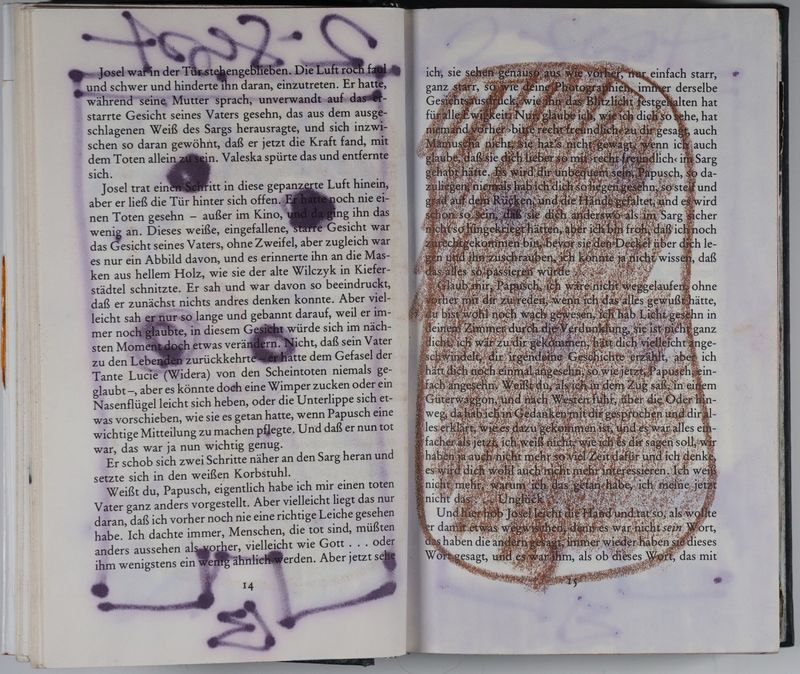 Josel war in der Tür stehengeblieben. Die Luft roch faul
und schwer und hinderte ihn daran, einzutreten. Er hatte,
während seine Mutter sprach, unverwandt auf das er-
starrte Gesicht seines Vaters gesehn, das aus dem ausge-
schlagenen Weiß des Sargs herausragte, und sich inzwi-
schen so daran gewöhnt, daß er jetzt die Kraft fand, mit
dem Toten allein zu sein. Valeska spürte das und entfernte
sich.
Josel trat einen Schritt in diese gepanzerte Luft hinein,
aber er ließ die Tür hinter sich offen. Er hatte noch nie ei-
nen Toten gesehn – außer im Kino, und da ging ihn das
wenig an. Dieses weiße, eingefallene, starre Gesicht war
das Gesicht seines Vaters, ohne Zweifel, aber zugleich war
es nur ein Abbild davon, und es erinnerte ihn an die Mas-
ken aus hellem Holz, wie sie der alte Wilczyk in Kiefer-
städtel schnitzte. Er sah und war davon so beeindruckt,
daß er zunächst nichts andres denken konnte. Aber viel-
leicht sah er nur so lange und gebannt darauf, weil er im-
mer noch glaubte, in diesem Gesicht würde sich im näch-
sten Moment doch etwas verändern. Nicht, daß sein Vater
zu den Lebenden zurückkehrte – er hatte dem Gefasel der
Tante Lucie (Widera) von den Scheintoten niemals ge-
glaubt –, aber es könnte doch eine Wimper zucken oder ein
Nasenflügel leicht sich heben, oder die Unterlippe sich et-
was vorschieben, wie sie es getan hatte, wenn Papusch eine
wichtige Mitteilung zu machen pflegte. Und daß er nun tot
war, das war ja nun wichtig genug.
Er schob sich zwei Schritte näher an den Sarg heran und
setzte sich in den weißen Korbstuhl.
Weißt du, Papusch, eigentlich habe ich mir einen toten
Vater ganz anders vorgestellt. Aber vielleicht liegt das nur
daran, daß ich vorher noch nie eine richtige Leiche gesehen
habe. Ich dachte immer, Menschen, die tot sind, müßten
anders aussehen als vorher, vielleicht wie Gott . . . oder
ihm wenigstens ein wenig ähnlich werden. Aber jetzt sehe
14
ich, sie sehen genauso aus wie vorher, nur einfach starr,
ganz starr, so wie eine Photographie, immer derselbe
Gesichtsausdruck, wie ihn das Blitzlicht festgehalten hat
für alle Ewigkeit. Nur, glaube ich, wie ich dich so sehe, hat
niemand vorher bitte recht freundlich zu dir gesagt, auch
Mamuscha nicht, sie hat's nicht gewagt, wenn ich auch
glaube, daß sie dich lieber so mit recht freundlich im Sarg
gehabt hätte. Es wird dir unbequem sein, Papusch, so da-
zuliegen, niemals hab ich dich so liegen gesehn, so steif und
grad auf dem Rücken, und die Hände gefaltet, und es wird
schon so sein, daß sie dich anders wo als im Sarg sicher
nicht so hingekriegt hätten, aber ich bin froh, daß ich noch
zurechtgekommen bin, bevor sie den Deckel über dich le-
gen und ihn zuschrauben, ich konnte ja nicht wissen, daß
das alles so passieren würde
Glaub mir, Papusch, ich wäre nicht weggelaufen, ohne
vorher mit dir zu reden, wenn ich das alles gewußt hätte,
du bist wohl noch wach gewesen, ich hab Licht gesehn in
deinem Zimmer durch die Verdunklung, sie ist nicht ganz
dicht, ich wär zu dir gekommen, hätt dich vielleicht ange-
schwindelt, dir irgendeine Geschichte erzählt, aber ich
hätt dich noch einmal angesehn, so wie jetzt, Papusch, ein-
fach angesehn. Weißt du, als ich in dem Zug saß, in einem
Güterwaggon, und nach Westen fuhr, über die Oder hin-
weg, da hab ich in Gedanken mit dir gesprochen und dir al-
les erklärt, wie es dazu gekommen ist, und es war alles ein-
facher als jetzt, ich weiß nicht, wie ich es dir sagen soll, wir
haben ja auch nicht mehr so viel Zeit dafür und ich denke,
es wird dich wohl auch nicht mehr interessieren. Ich weiß
nicht mehr, warum ich das getan habe, ich meine jetzt
nicht das . . . Unglück
Und hier hob Josel leicht die Hand und tat so, als wollte
er damit etwas wegwischen, denn es war nicht sein Wort,
das haben die andern gesagt, immer wieder haben sie dieses
Wort gesagt, und es war ihm, als ob dieses Wort, das mit
15